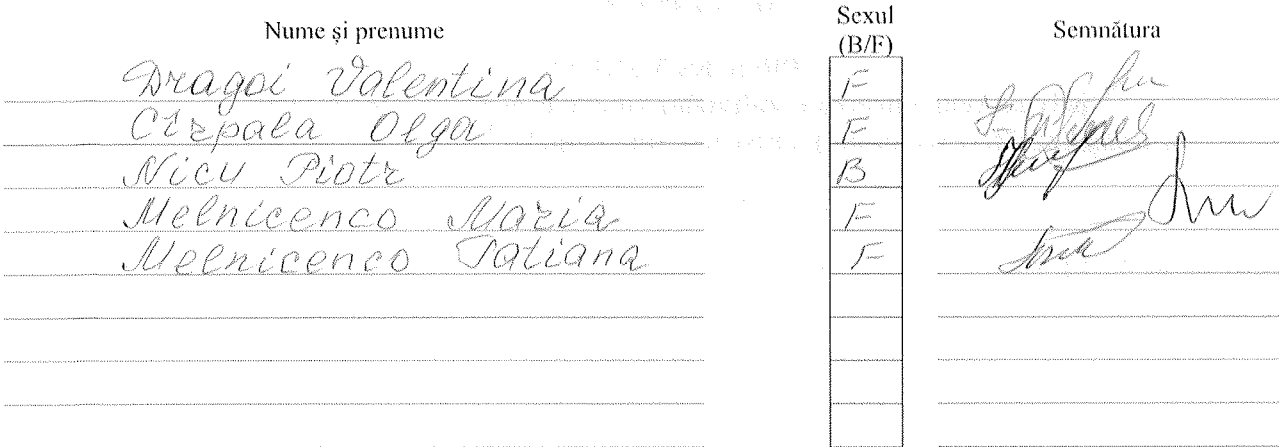 Nume și prenume Sexul (B/F) Semnătura
Dragoi Valentina F
Cîrpala Olga F
Nicu Piotr B
Melnicenco Maria F
Melnicenco Tatiana F